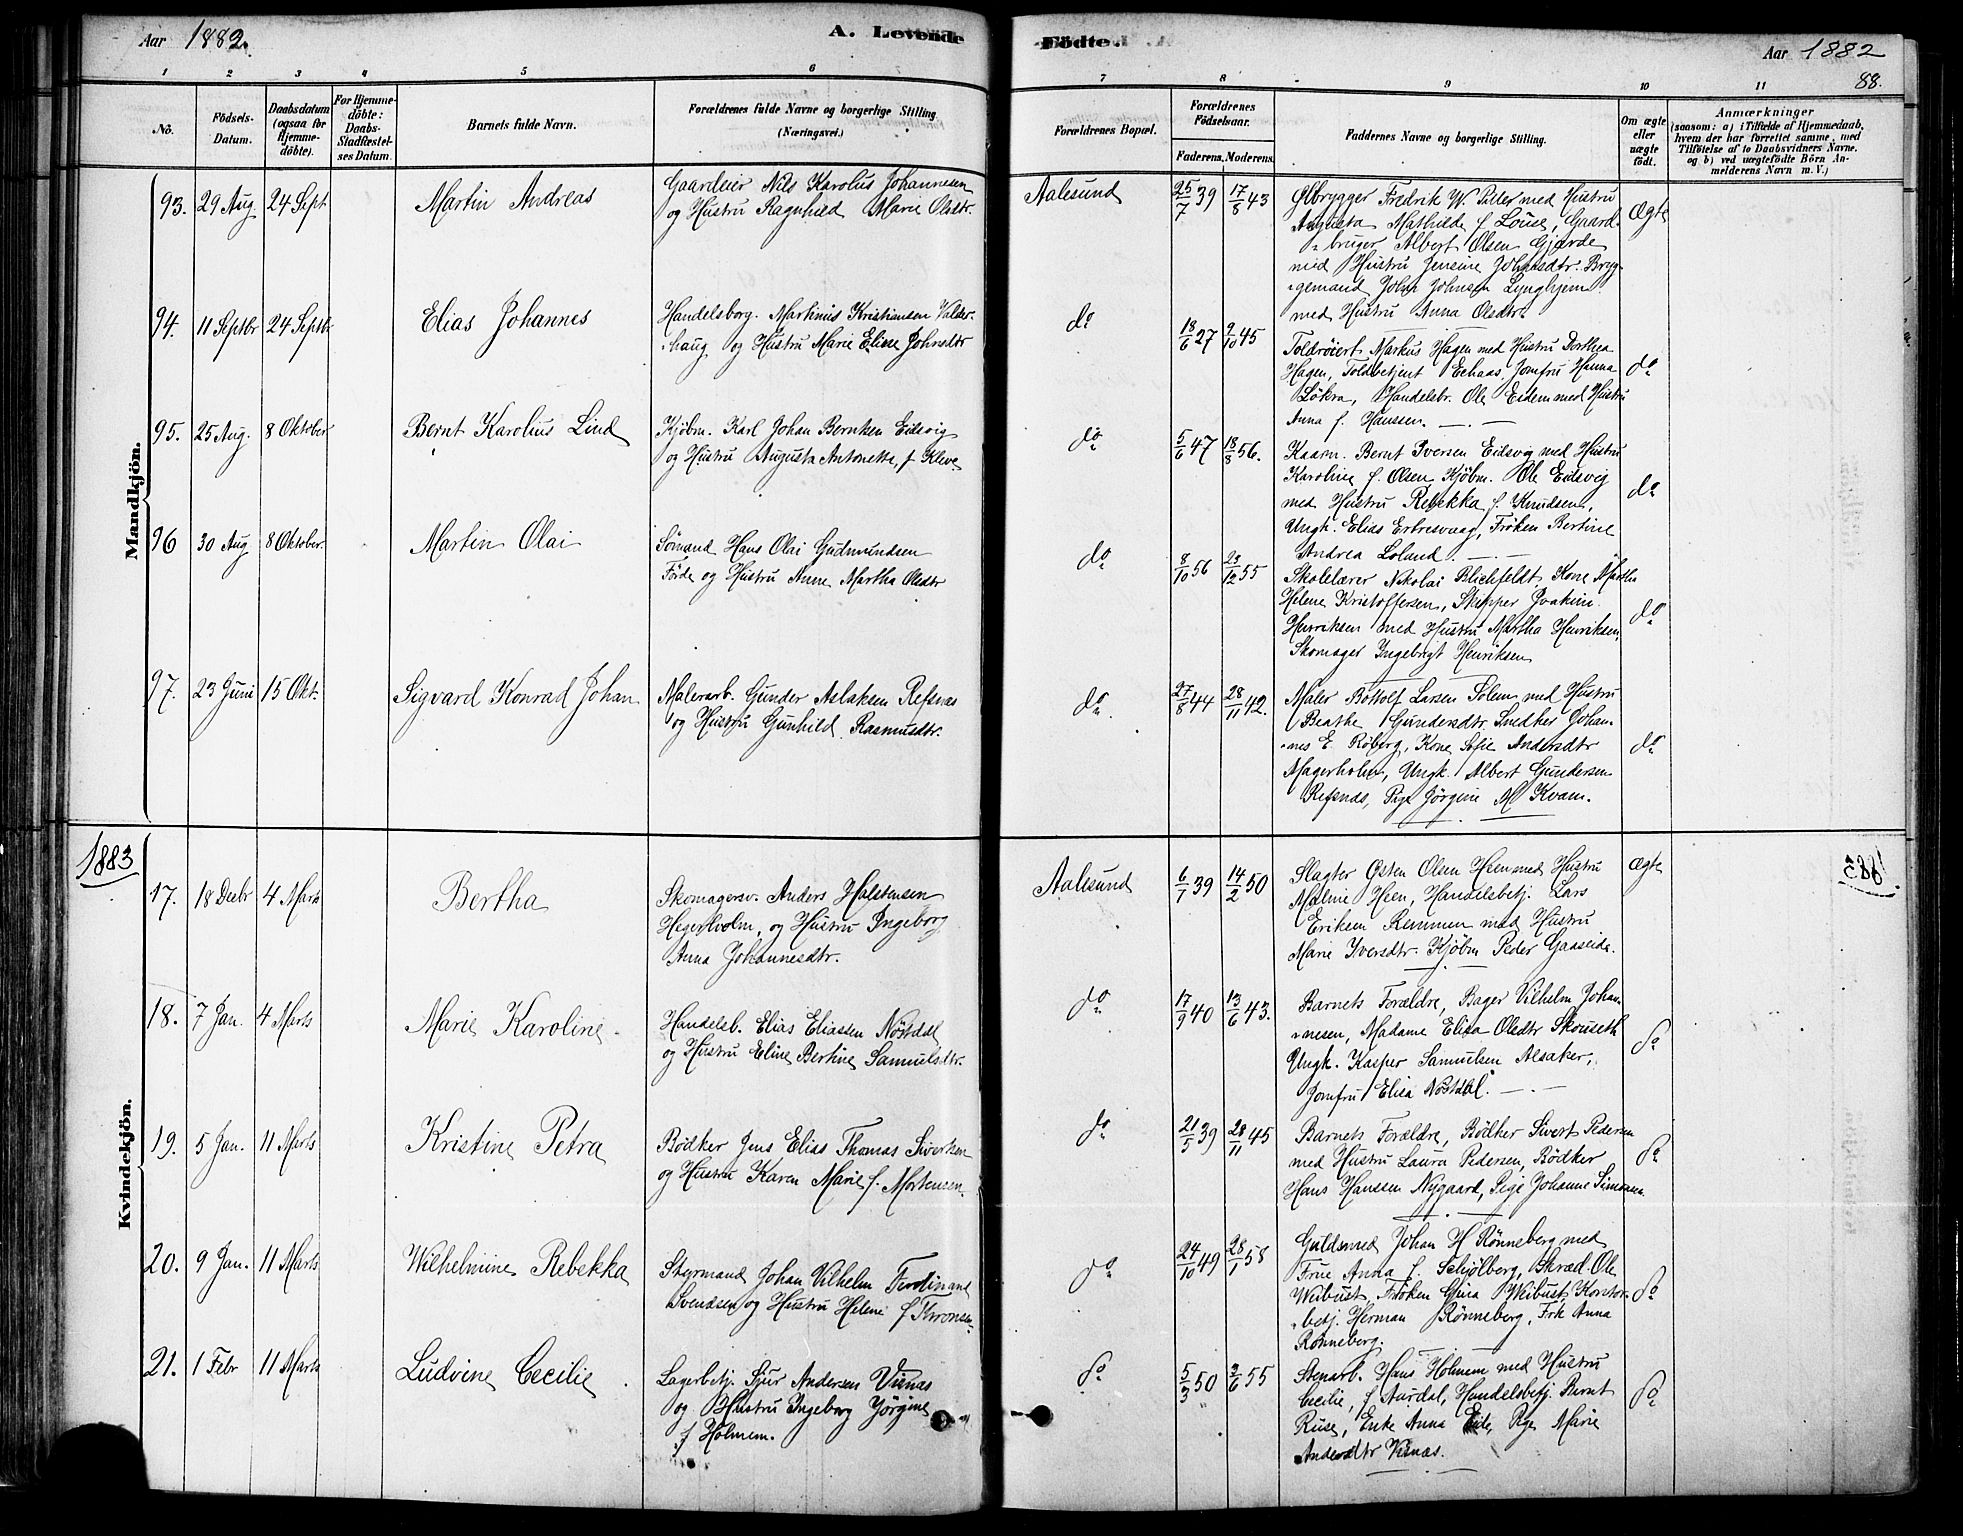 Aar 1882.
A. Levende
Födte.
Aar 1882
88.
1 2 3 4 5 6 7 8 9 10 11
No.
Födsels-
Datum.
Daabsdatum
(ogsaa for
Hjemme-
döbte).
For Hjemme-
döbte:
Daabs-
Stadfæstel-
ses Datum.
Barnets fulde Navn.
Forældrenes fulde Navne og borgerlige Stilling
(Næringsvei.)
Forældrenes Bopæl.
Forældrenes
Födselsaar.
Faderens. Moderens.
Faddernes Navne og borgerlige Stilling.
Om ægte
eller
uægte
födt.
Anmærkninger
(saasom: a) i Tilfælde af Hjemmedaab,
hvem der har forrettet samme, med
Tilföielse af to Daabsvidners Navne.
og b) ved uægtefödte Börn An-
melderens Navn m. V.)
Mandkjön.
93. 29 Aug. 24 Sept Martin Andreas
Gaardeier Nils Karolus Johannesen
og Hustru Ragnhild Marie Olsdtr.
Aalesund 25/7 39 17/8 43
Ølbrygger Fredrik W. Piller med Hustru
Augusta Mathilde f Louse, Gaard-
bruger Albert Olsen Gjærde
med Hustru Jensine Johnsdtr. Bryg-
gemand John Johnsen Lynghjem
med Hustru Anna Olsdtr.
Ægte
94. 11 Septbr 24 Septbr Elias Johannes
Handelsborg. Martinus Kristiansen Valder-
haug og Hustru Marie Eline Johnsdtr
do 18/6 27 9/10 45
Toldrøiert Markus Hagen med Hustru Dorthea
Hagen, Toldbetjent Echaas, Jomfru Hanna
Løkra, Handelsbr. Ole Eidem med Hustru
Anna f. Hanssen.
do
95. 25 Aug. 8 Oktober Bernt Karolius Lind
Kjøbm. Karl Johan Berntsen Eidsvig
og Hustru Augusta Antonette, f Kleve
do 5/6 47 18/8 56.
Kaarm. Bernt Iversen Eidsvig med Hustru
Karoline f. Olsen, Kjøbm. Ole Eidsvig
med Hustru Rebekka f. Knudsen,
Ungk. Elias Erbresvaag, Frøken Bertine
Andrea Loland.
do
96 30 Aug 8 Oktober. Martin Olai
Sømand Hans Olai Gudmundsen
Förde og Hustru Anne Martha Olsdtr
do 8/10 56 23/12 55
Skolelærer Nikolai Blichfeldt, Kone Martha
Helene Kristoffersen, Skipper Joakim
Henriksen med Hustru Martha Henriksen,
Skomager Ingebrigt Henriksen
do
97. 23 Juni 15 Okt. Sigvard Konrad Johan
Malerarb. Gunder Aslaksen Refsnes
og Hustru Gunhild Rasmusdtr.
do 27/8 44 28/11 42.
Maler Bottolf Larsen Solem med Hustru
Beathe Gundersdtr Snedker Johan-
nes E. Røberg, Kone Sofie Andersdtr
Magerholm, Ungk. Albert Gundersen
Refsnes, Pige Jörgine M Kvam.
do
1883
Kvindekjön.
17. 18 Decbr 4 Marts Bertha
Skomagersv. Anders Halstensen
Hegerholm, og Hustru Ingeborg
Anna Johannesdtr.
Aalesund 6/1 39 14/2 50
Slagter Østen Olsen Hien med Hustru
Maline Hien, Handelsbetj. Lars
Eriksen Remmen med Hustru
Marie Iversdtr. Kjöbm Peder Gaaseide.
Ægte
18. 7 Jan. 4 Marts Marie Karoline
Handelsb. Elias Eliassen Nøstdal
og Hustru Eline Bertine Samulsdtr.
do 17/9 40 13/6 43.
Barnets Forældre, Bager Vilhelm Johan-
nesen, Madame Elisa Olsdtr Skouseth
Ungk. Kasper Samuelsen Alsaker,
Jomfru Elisa Nøstdal.
do
19. 5 Jan. 11 Marts Kristine Petra
Bødker Jens Elias Thomas Sivertsen
og Hustru Karen Marie f. Mortensen
do 21/5 39 28/11 45
Barnets Forældre, Bødker Sivert Pedersen
med Hustru Laura Pedersen, Bødker
Hans Hanssen Nygaard, Pige Johanne Simonsen
do
20. 9 Jan. 11 Marts Wilhelmine Rebekka
Styrmand Johan Vilhelm Ferdinand
Svendsen og Hustru Helene f
do 24/10 49 28/1 58
Guldsmed Johan H Rønneberg med
Frue Anna f Schjølberg, Skræd. Ole
Weibust, Frøken Gina Weibust, Kontor-
betj. Herman Rønneberg, Frk Anna
Rønneberg.
do
21. 1 Febr 11 Marts Ludvine Cecilie
Lagerbetj. Sjur Andersen Visnæs
og Hustru Ingeborg Jörgine
f Holmem.
do 5/3 50 2/6 55
Stenarb. Hans Holmem med Hustru
Cecilie, f Aardal, Handelsbetj. Bernt
Ruse, Enke Anna Eide, Pige Marie
Andersdtr Visnæs.
do